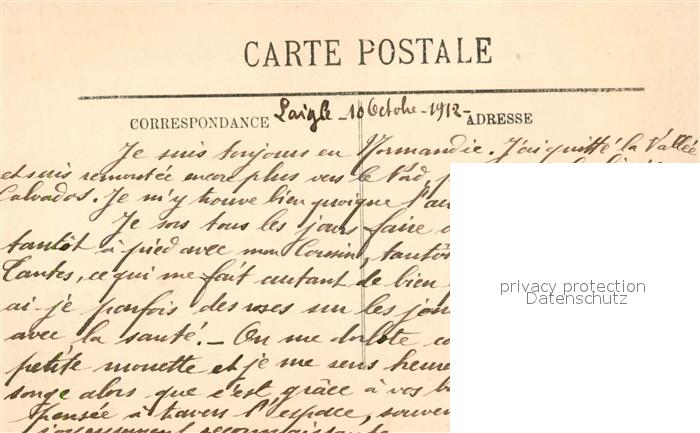 CARTE POSTALE
CORRESPONDANCE
Laigle - 10 Octobre - 1912 -
ADRESSE
Je suis toujours en Normandie. J'ai quitté la Vallée
et suis remontée encore plus vers le Nord
Calvados. Je m'y trouve bien quoique l'au
Je sors tous les jours faire
tantôt à pied avec mon Cousin, tantôt
Tantes, ce qui me fait autant de bien
ai-je parfois des roses sur les jou
avec la santé. - On me dorlote co
petite mouette et je me sens heure
songe alors que c'est grâce à vos b
pensée à travers l'espace, souven
joyeusement reconnaissante
privacy protection
Datenschutz